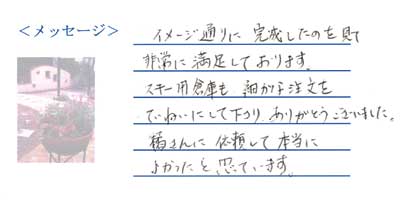 ＜メッセージ＞
イメージ通りに 完成したのを見て
非常に満足しております。
スキー用倉庫も 細かな注文を
ていねいにして下さり、ありがとうございました。
橘さんに 依頼して本当に
よかったと思っています。